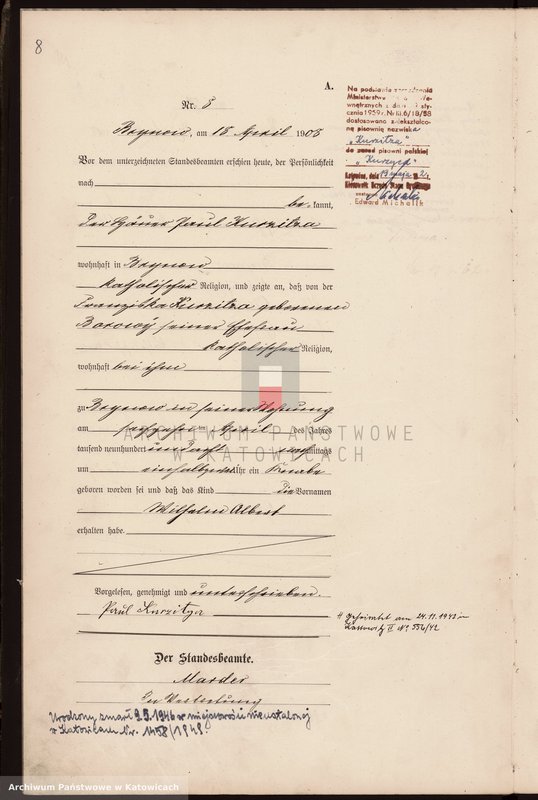 8
A.
Nr. 8
Brynow, am 18 April 1908
Vor dem unterzeichneten Standesbeamten erschien heute, der Persönlichkeit
nach
be kannt,
der Häuer Paul Kurzitza
wohnhaft in Brynow
katholischer Religion, und zeigte an, daß von der
Franziska Kurzitza geborenen
Borowy seiner Ehefrau
katholischer Religion,
wohnhaft bei ihm
zu Brynow in seiner Wohnung
am April des Jahres
tausend neunhundert und acht nach mittags
um ein halb Uhr ein Knabe
geboren worden sei und daß das Kind die Vornamen
Wilhelm Albert
erhalten habe.
Vorgelesen, genehmigt und unterschrieben.
Paul Kurzitza
Der Standesbeamte.
In Vertretung
Na podstawie zarządzenia
Ministerstwa We-
wnętrznych z dnia sty-
cznia 1959 r. Nr 6/18/58
dostosowano zniekształco-
ną pisownię nazwiska
„Kurzitza"
do zasad pisowni polskiej
„Kurzyca"
Katowice, dnia 19 maja
Kierownik Urzędu Stanu Cywilnego
Edward Michalik
Geheiratet am 24.11.1942 in
Kattowitz II No 556/42
Urodzony zmarł 9.5.1946 w miejscowości nieustalonej
z Katowicam Nr. 1458/1948
ARCHIWUM PAŃSTWOWE
W KATOWICACH
Archiwum Państwowe w Katowicach